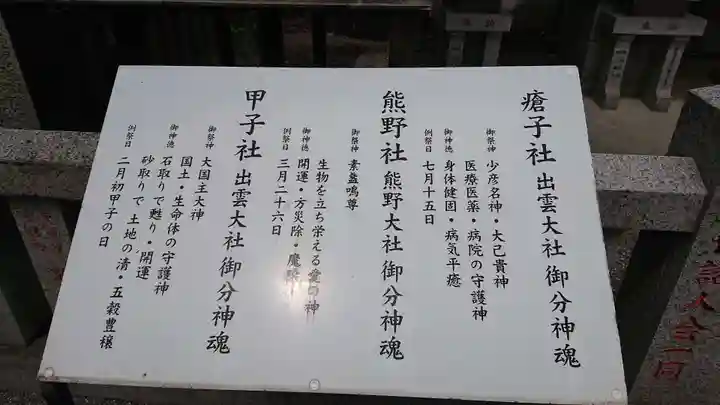 瘡子社 出雲大社 御分神魂
御祭神 少彦名神・大己貴神
医療医薬・病院の守護神
御神徳 身体健固・病気平癒
例祭日 七月十五日
熊野社 熊野大社 御分神魂
御祭神 素盞鳴尊
生物を立ち栄える愛の神
御神徳 開運・方災除・魔除
例祭日 三月二十六日
甲子社 出雲大社 御分神魂
御祭神 大国主大神
国土・生命体の守護神
御神徳 石取りで甦り・開運
砂取りで 土地の清・五穀豊穣
例祭日 二月初甲子の日